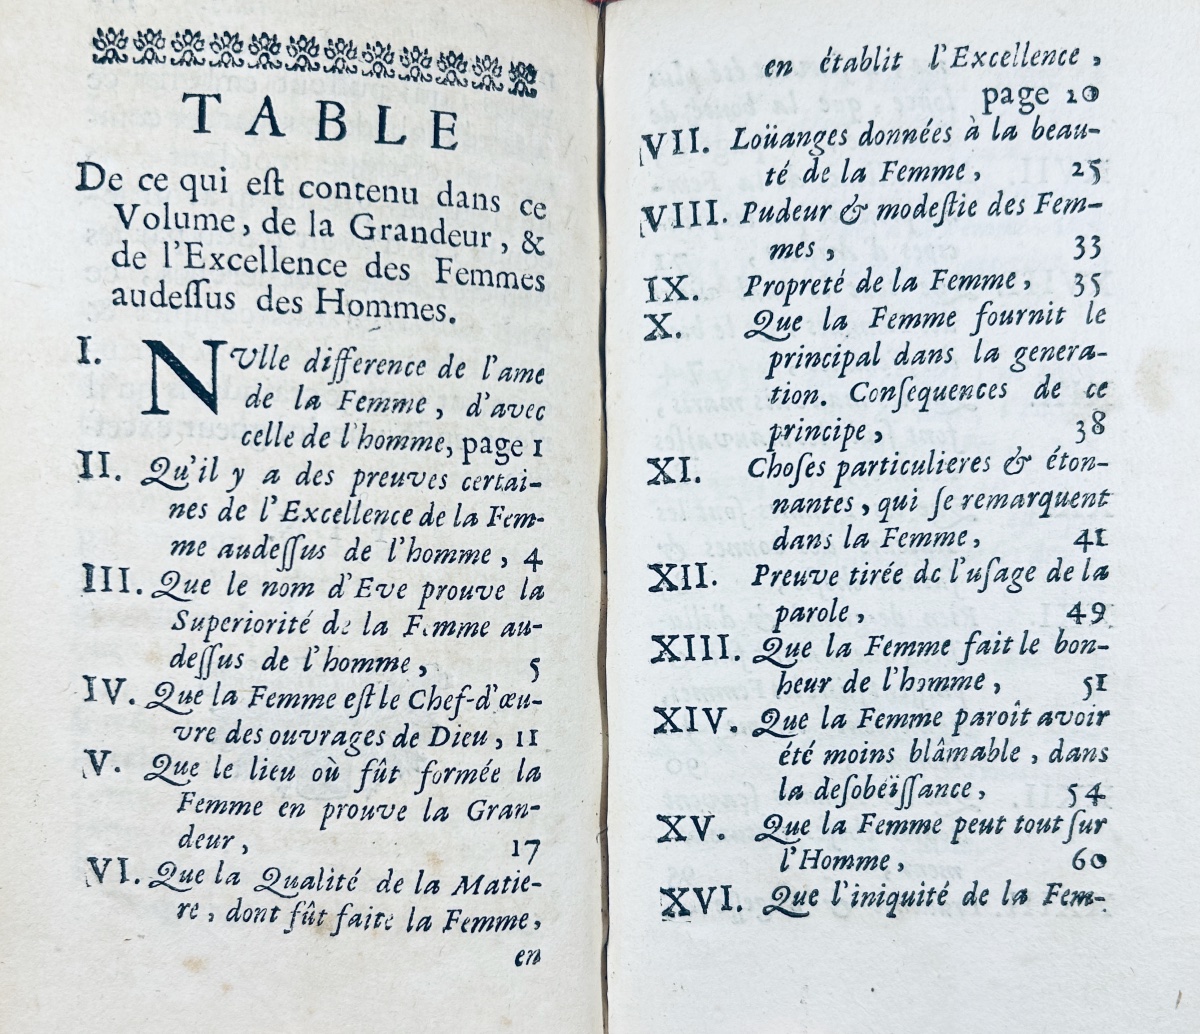 TABLE
De ce qui eſt contenu dans ce
Volume, de la Grandeur, &
de l'Excellence des Femmes
audeſſus des Hommes.
I. Nulle difference de l'ame
de la Femme, d'avec
celle de l'homme, page 1
II. Qu'il y a des preuves certai-
nes de l'Excellence de la Fem-
me audeſſus de l'homme, 4
III. Que le nom d'Eve prouve la
Superiorité de la Femme au-
deſſus de l'homme, 5
IV. Que la Femme eſt le Chef-d'œu-
vre des ouvrages de Dieu, 11
V. Que le lieu où fût formée la
Femme en prouve la Gran-
deur, 17
VI. Que la Qualité de la Matie-
re, dont fût faite la Femme,
en
en établit l'Excellence,
page 20
VII. Loüanges données à la beau-
té de la Femme, 25
VIII. Pudeur & modeſtie des Fem-
mes, 33
IX. Propreté de la Femme, 35
X. Que la Femme fournit le
principal dans la genera-
tion. Conſequences de ce
principe, 38
XI. Choſes particulieres & éton-
nantes, qui ſe remarquent
dans la Femme, 41
XII. Preuve tirée de l'uſage de la
parole, 49
XIII. Que la Femme fait le bon-
heur de l'homme, 51
XIV. Que la Femme paroît avoir
été moins blâmable, dans
la deſobéïſſance, 54
XV. Que la Femme peut tout ſur
l'Homme, 60
XVI. Que l'iniquité de la Fem-